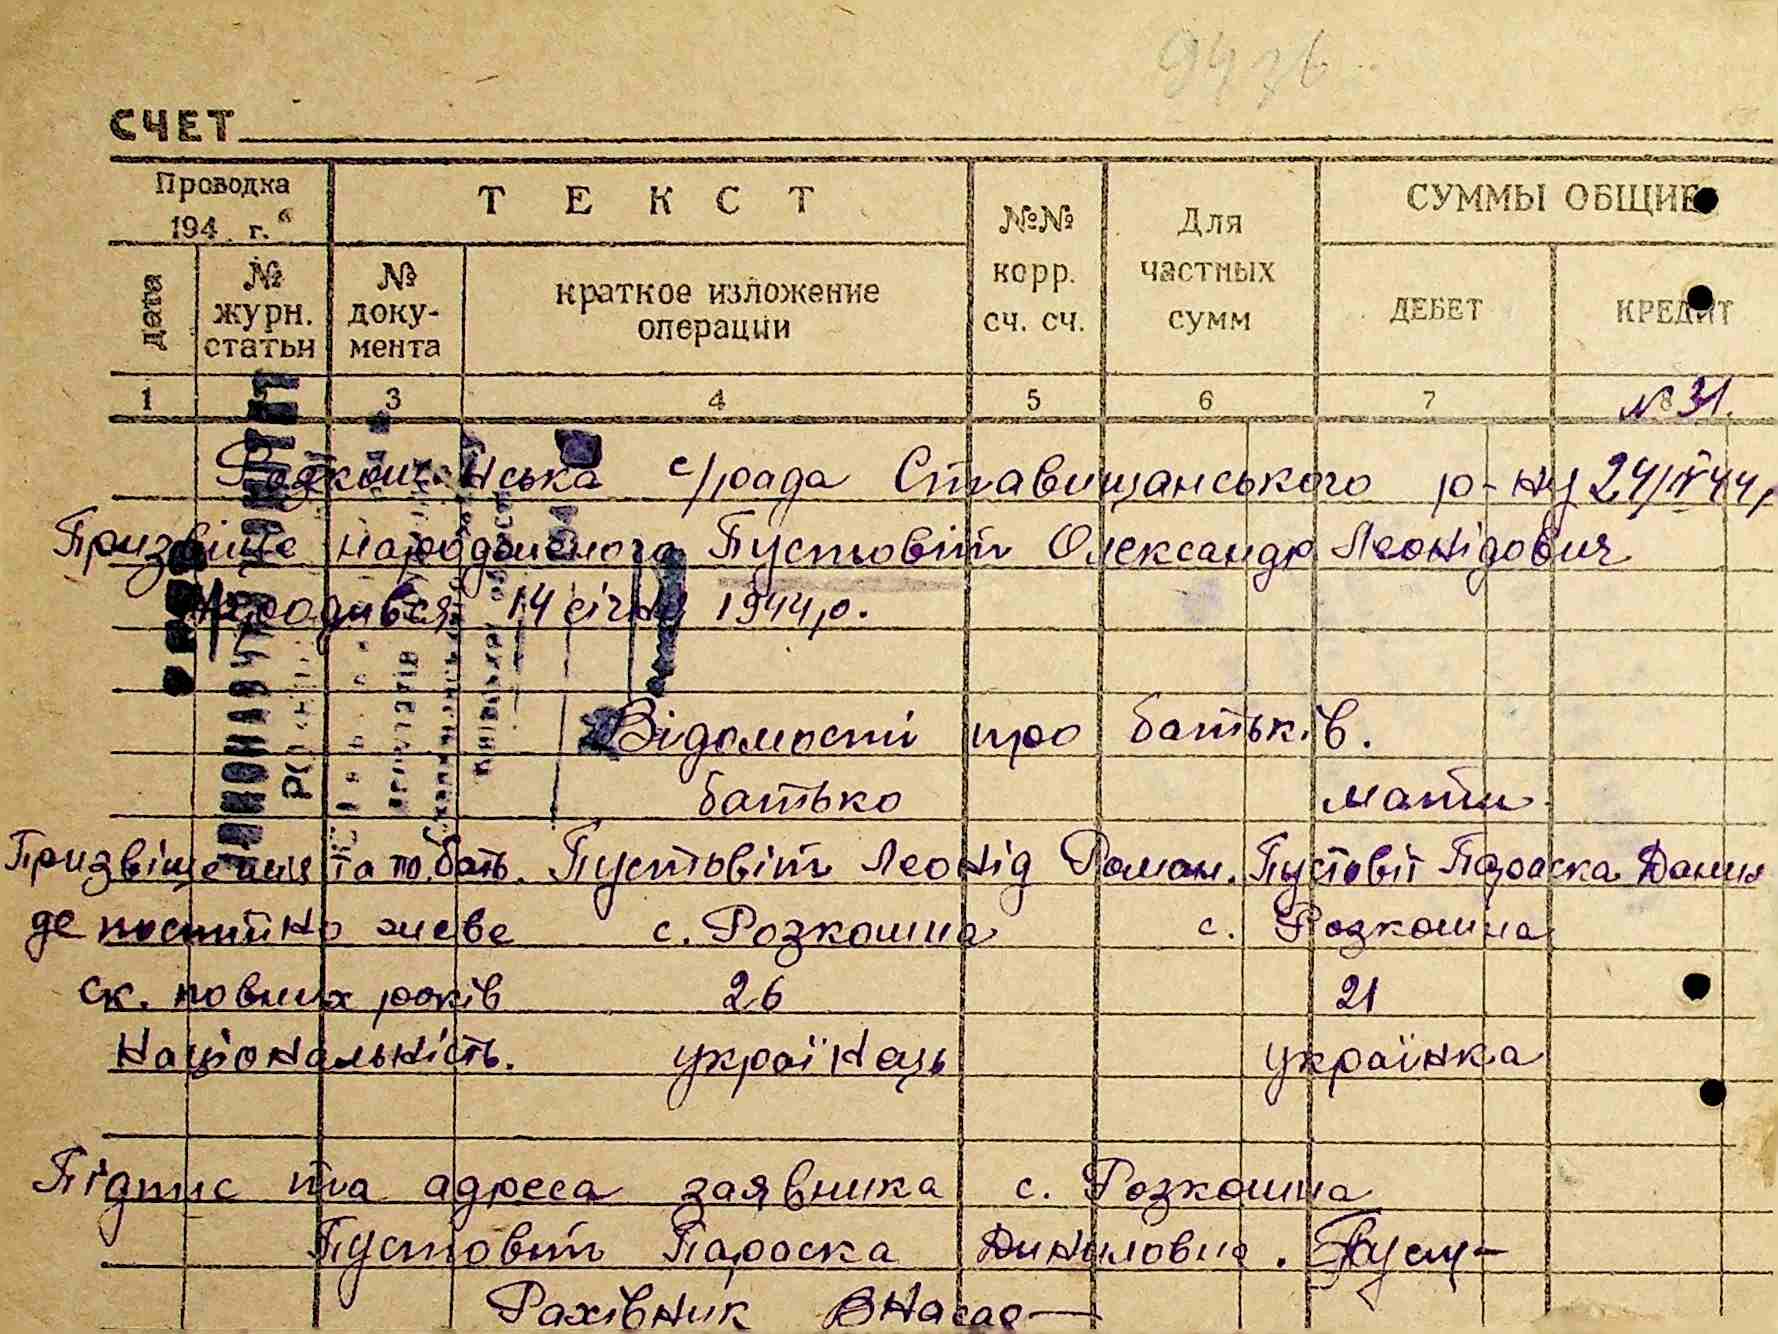 9436
СЧЕТ
Проводка
194 г.
ТЕКСТ
№№
корр.
сч. сч.
Для
частных
сумм
СУММЫ ОБЩИЕ
дата
№
журн.
статьи
№
доку-
мента
краткое изложение
операции
ДЕБЕТ
КРЕДИТ
1 3 4 5 6 7
№ 31.
Розкошнська с/рада Ставищанського р-ну 24/IV 44р
Призвіще народженого Пустовіт Олександр Леонідович
Народився 14 січня 1944р.
Відомості про батьків.
батько мати
Призвіще имя та по бать. Пустовіт Леонід Роман. Пустовіт Параска Данил
де постійно живе с. Розкошна с. Розкошна
ск. повних років 26 21
Національність. українець українка
Підпис та адреса заявника с. Розкошна
Пустовіт Параска Даниловна. Пуст
Рахівник